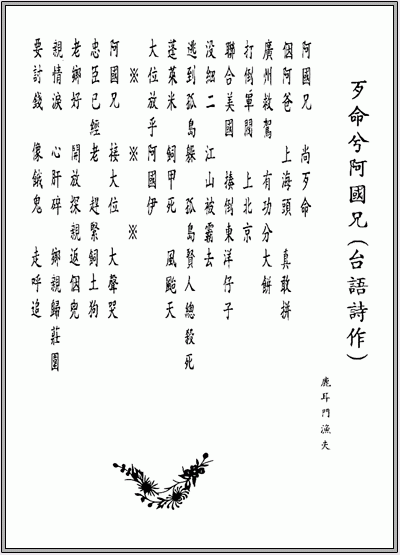 歹命兮阿國兄(台語詩作)
鹿耳門漁夫
阿國兄 尚歹命
個阿爸 上海頭 真敢拼
廣州救駕 有功分大餅
打倒軍閥 上北京
聯合美國 揍倒東洋仔子
沒細二 江山被霸去
逃到孤島躲 孤島賢人總殺死
蓬萊米 飼甲死 風颱天
大位放乎阿國伊
※ ※ ※
阿國兄 接大位 大聲哭
忠臣已經老 趕緊飼土狗
老鄉好 開放探親返個兜
親情淚 心肝碎 鄉親歸莊園
要討錢 像餓鬼 走呼追